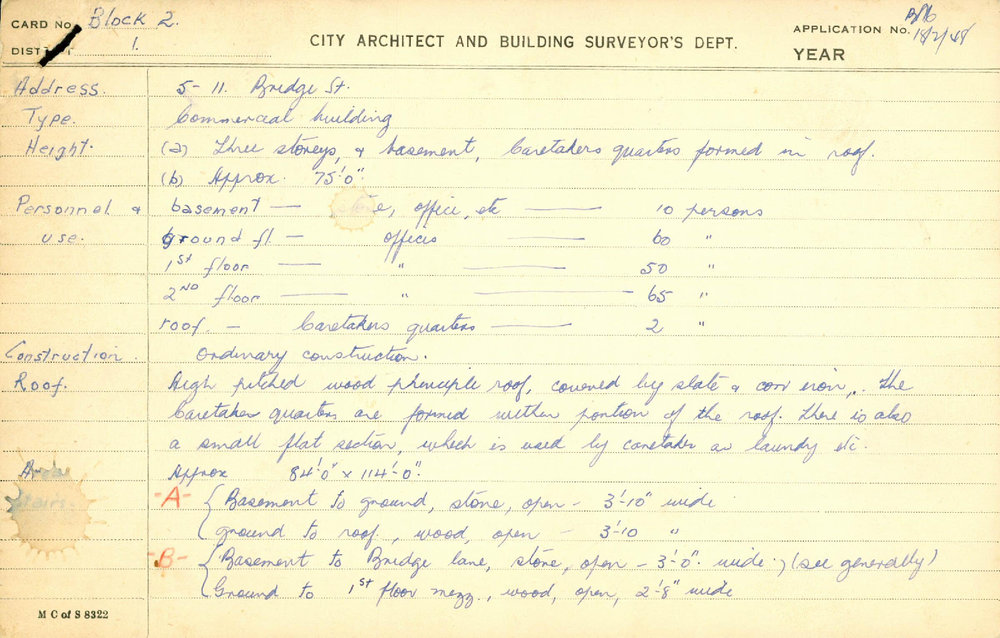 CARD No. Block 2.
DISTRICT 1.
CITY ARCHITECT AND BUILDING SURVEYOR'S DEPT.
APPLICATION No. 18/2/48
YEAR
Address. 5-11. Bridge St.
Type. Commercial building
Height. (a) Three storeys, & basement, Caretakers quarters formed in roof.
(b) Approx. 75'.0".
Personnel & basement — store, office, etc — 10 persons
use. ground fl — offices — 60 "
1st floor — " — 50 "
2ND floor — " — 65 "
roof. — Caretakers quarters — 2 "
Construction. Ordinary construction.
Roof. High pitched wood principle roof, covered by slate & corr iron,. The
Caretaker quarters are formed within portion of the roof. There is also
a small flat section, which is used by caretaker as laundy etc.
Area Approx 84'.0" x 114'-0".
Stairs. -A- { Basement to ground, stone, open - 3'-10" wide
ground to roof, wood, open - 3'-10 "
-B- { Basement to Bridge lane, stone, open - 3'-0". wide.) (see generally)
Ground to 1st floor mezz., wood, open, 2'-8" wide
M C of S 8322